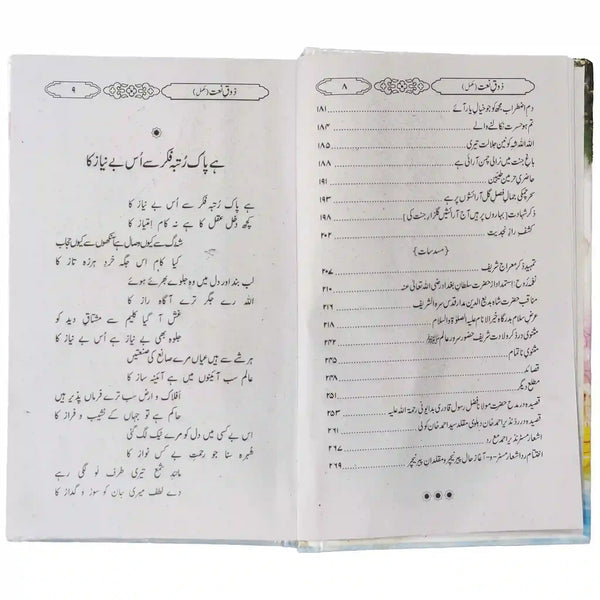 ذوقِ نعت (مکمل) ۸
دمِ اضطراب مجھ کو جو خیالِ یار آئے ۱۸۱
تم ہو حسرت نکالنے والے ۱۸۳
اللہ اللہ شہِ کونین جلالت تیری ۱۸۵
باغِ جنت میں نرالی چمن آرائی ہے ۱۸۸
حاضریِ حرمین طیبین ۱۹۱
سحر چمکی جمالِ فصلِ گل آرائشوں پر ہے ۱۹۳
ذکرِ شہادت [بہاروں پر ہیں آج آرائشیں گلزارِ جنت کی] ۱۹۸
کشفِ رازِ نجدیت ۲۰۲
{مسدسات}
تمہید ذکرِ معراج شریف ۲۰۷
نغمۂ روح: استمداد از حضرت سلطانِ بغداد رضی اللہ تعالیٰ عنہ ۲۱۰
مناقب حضرت شاہ بدیع الدین مدار قدس سرہ الشریف ۲۱۶
عرضِ سلام بدرگاہِ خیر الانام علیہ الصلوٰۃ والسلام ۲۱۸
مثنوی در ذکرِ ولادت شریف حضور سرورِ عالم ﷺ ۲۳۱
مثنوی ناتمام ۲۳۵
قصائد ۲۳۸
مطلع دیگر
قصیدہ در مدح حضرت مولانا فضلِ رسول قادری بدایونی رحمۃ اللہ علیہ ۲۵۳
قصیدہ در ردِّ نذیر احمد خان دہلوی مقلد سید احمد خان کولی
اشعار مسٹر نذیر احمد مع رد ۲۶۷
اختتامِ رد اشعار مسٹر-و-آغازِ حال پیرِ نیچر و مقلدانِ پیرِ نیچر ۲۶۹
ذوقِ نعت (مکمل) ۹
ہے پاک رُتبہ فکر سے اُس بے نیاز کا
ہے پاک رُتبہ فکر سے اُس بے نیاز کا
کچھ دَخْل عقل کا ہے نہ کام اِمتیاز کا
شہ رگ سے کیوں وصال ہے آنکھوں سے کیوں حجاب
کیا کام اس جگہ خردِ ہرزہ تاز کا
لب بند اور دل میں وہ جلوے بھرے ہوئے
اللہ رے جگر ترے آگاہ راز کا
غش آ گیا کلیم سے مشتاقِ دید کو
جلوہ بھی بے نیاز ہے اُس بے نیاز کا
ہر شے سے ہیں عیاں مرے صانع کی صنعتیں
عالم سب آئینوں میں ہے آئینہ ساز کا
اَفلاک و ارض سب ترے فرماں پذیر ہیں
حاکم ہے تو جہاں کے نشیب و فراز کا
اس بے کسی میں دل کو مرے ٹیک لگ گئی
شُہرہ سنا جو رحمتِ بے کس نواز کا
مانندِ شمع تیری طرف لَو لگی رہے
دے لطف میری جان کو سوز و گداز کا